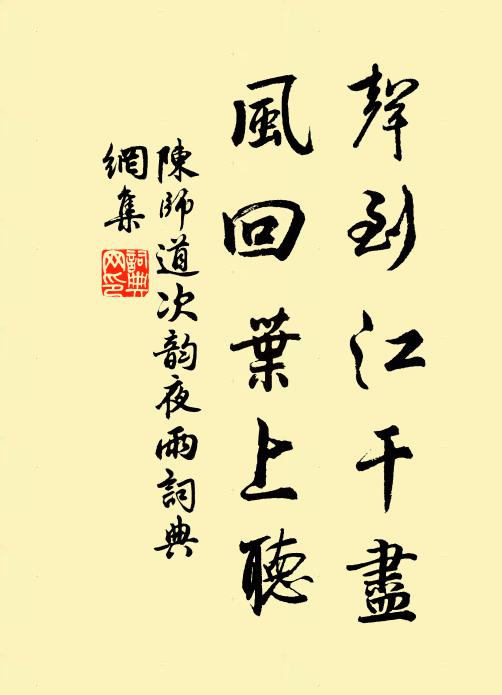 聲到江干盡
風回葉上聽
陳師道次韵夜雨詞典
網集
詞典
网印